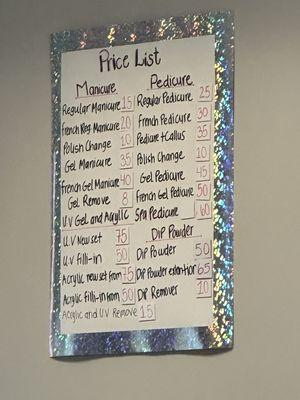 Price List
Manicure
Regular Manicure 15
French Reg Manicure 20
Polish Change 10
Gel Manicure 35
French Gel Manicure 40
Gel Remove 8
U.V Gel and Acrylic
U.V New set 75
U.V Fill-in 50
Acrylic new set from 75
Acrylic Fill-in from 50
Acrylic and U.V Remove 15
Pedicure
Regular Pedicure 25
French Pedicure 30
Pedicure + Callus 35
Polish Change 10
Gel Pedicure 45
French Gel Pedicure 50
Spa Pedicure 60
Dip Powder
Dip Powder 50
Dip Powder extention 65
Dip Remover 10